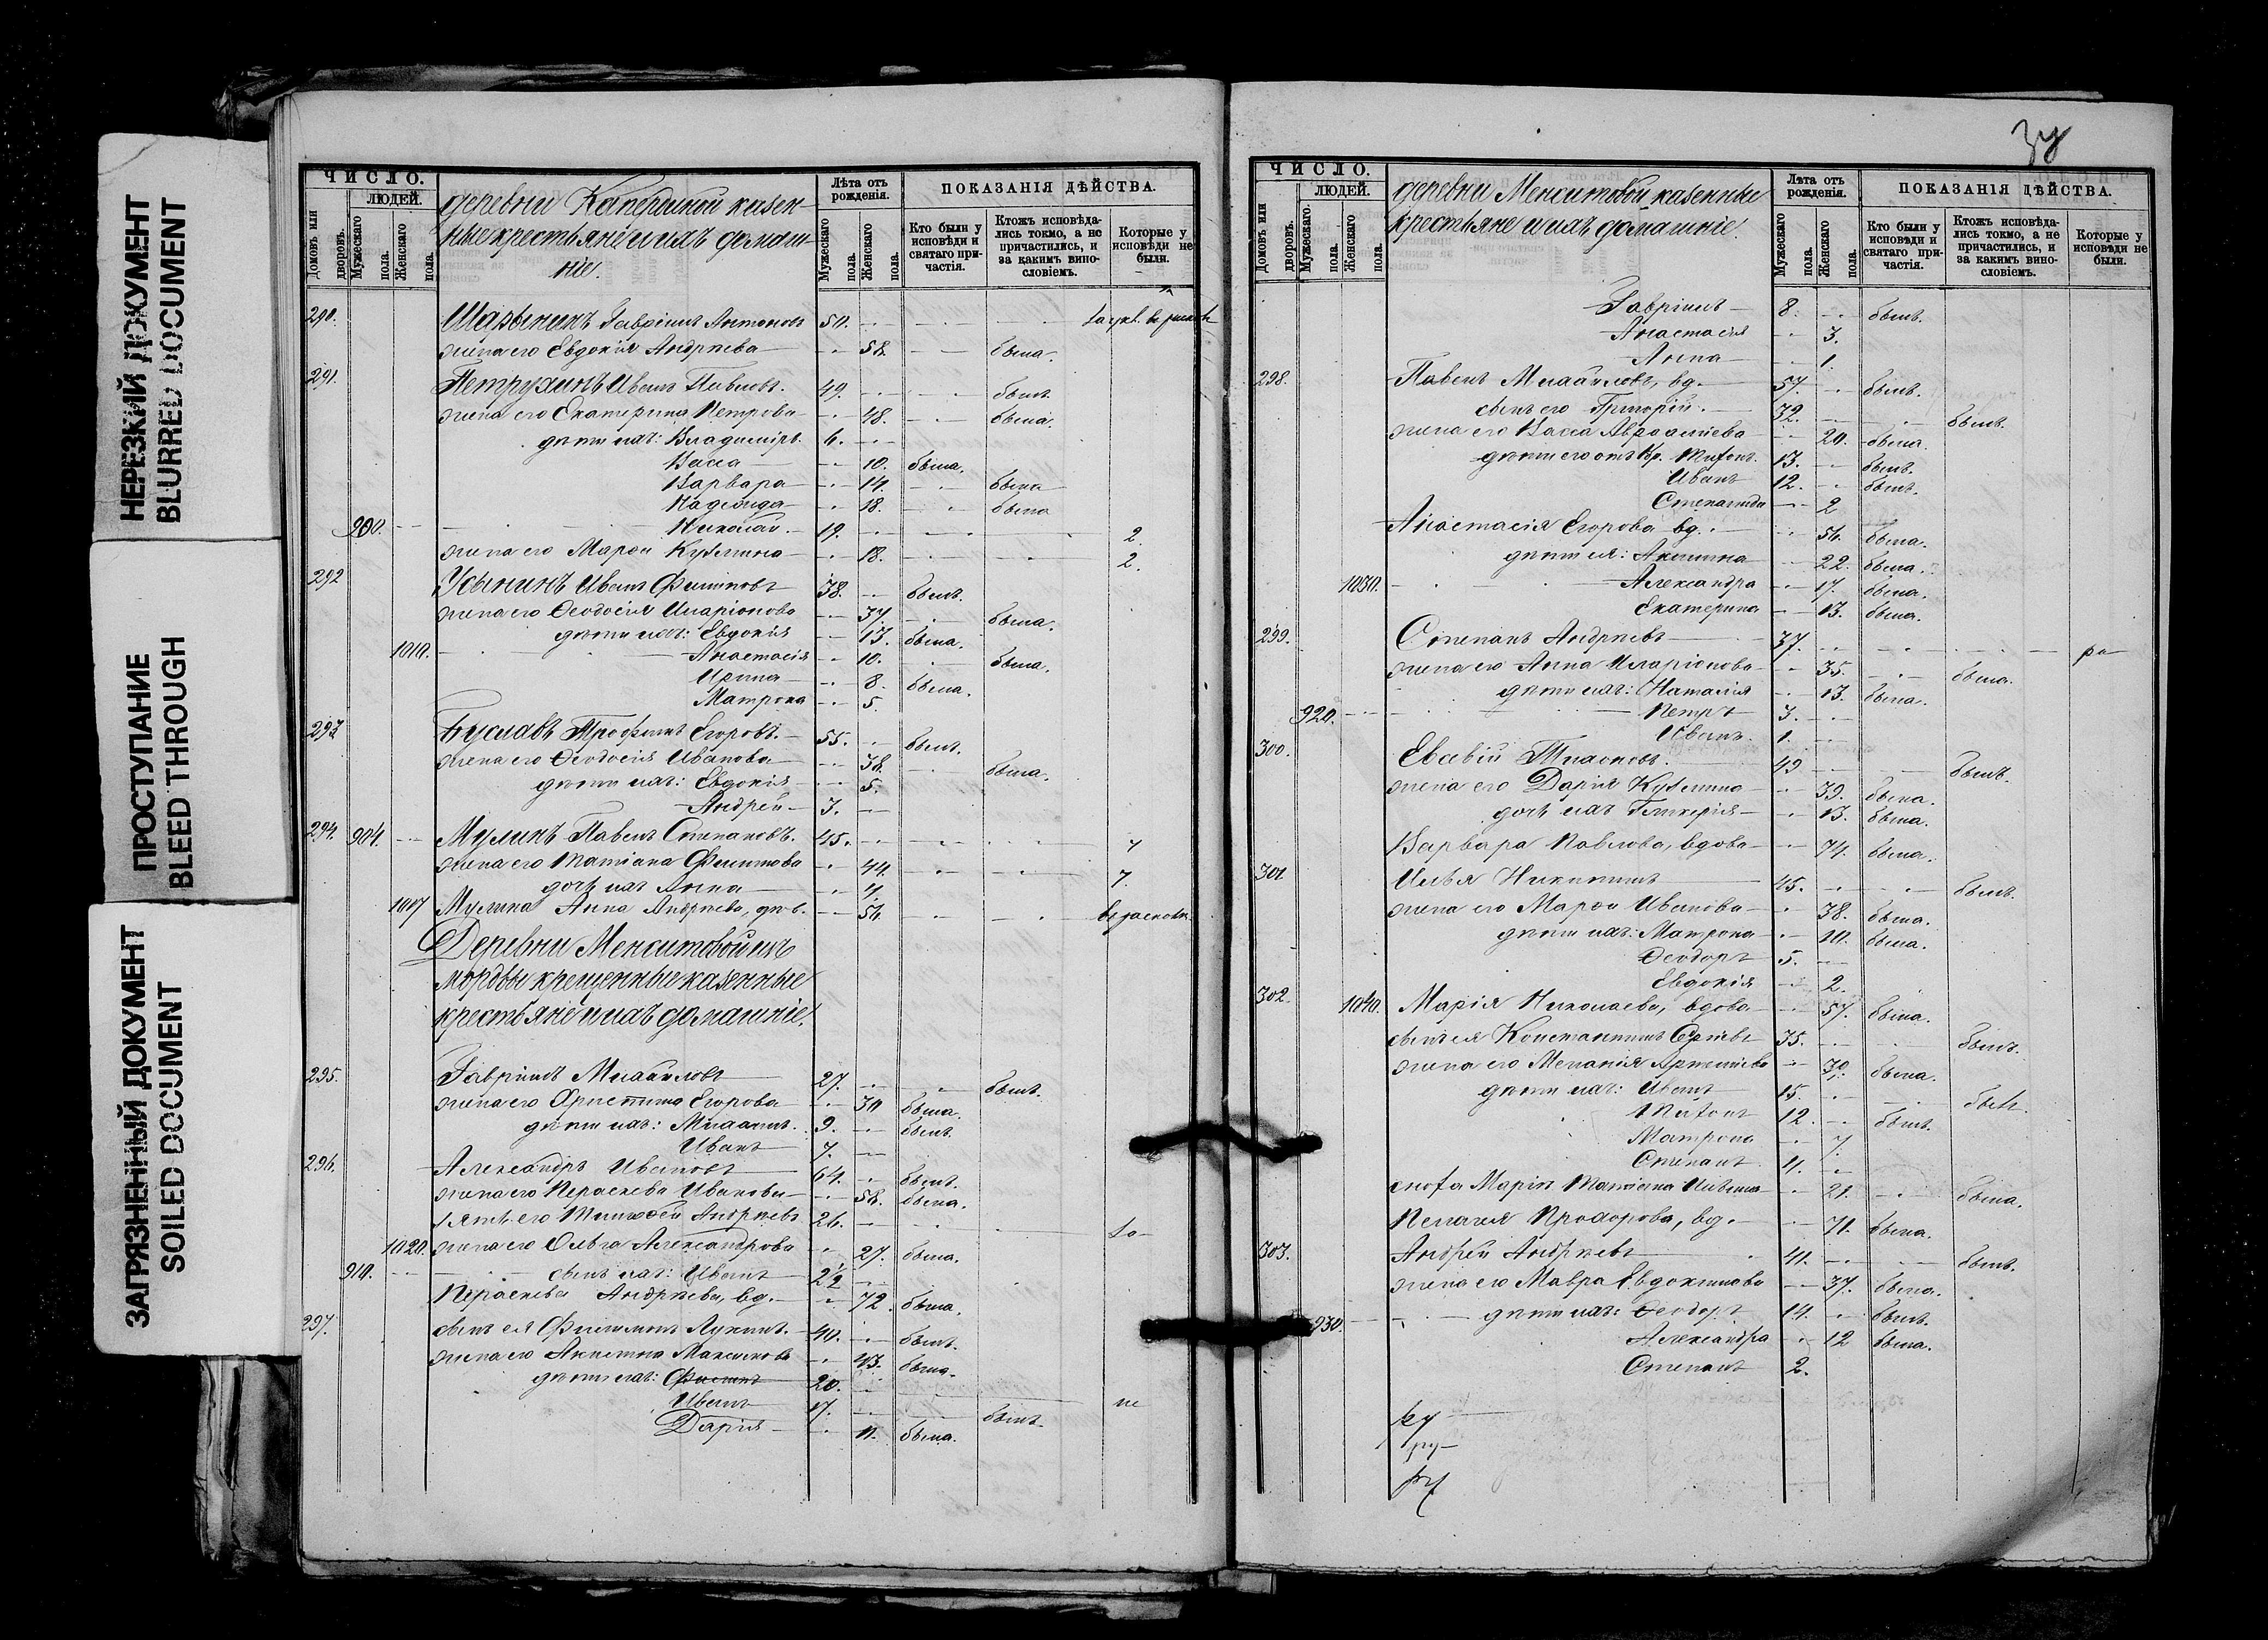 НЕРЕЗКИЙ ДОКУМЕНТ
BLURRED DOCUMENT
ПРОСТУПАНИЕ
BLEED THROUGH
ЗАГРЯЗНЕННЫЙ ДОКУМЕНТ
SOILED DOCUMENT
ЧИСЛО.
ЛЮДЕЙ.
Домовъ или дворовъ.
Мужескаго пола.
Женскаго пола.
казен-
ные крестьяне и ихъ домаш-
ніе.
Лѣта отъ рожденія.
Мужескаго пола.
Женскаго пола.
ПОКАЗАНІЯ ДѢЙСТВА.
Кто были у исповѣди и святаго причастія.
Ктожъ исповѣдались токмо, а не причастились, и за какимъ винословіемъ.
Которые у исповѣди не были.
290. Гавріилъ Антоновъ 50.
жена его Евдокія Андреева 58. была.
291. Петрухинъ Иванъ Павловъ. 49. былъ
жена его Екатерина Петрова 48. была.
дѣти ихъ: Владиміръ. 6.
Васса 10. была.
Варвара 14. была
Надежда 18. была
900. Николай 19. 2
жена его Кузмина 18. 2.
292 Иванъ Филиповъ 38. былъ.
жена его Ѳеодосія Иларіонова 37. была.
дѣти ихъ: Евдокія 13. была.
1010. Анастасія 10. была.
Ирина 8. была.
Матрона 5.
293 Трофимъ Егоровъ. 55. былъ.
жена его Ѳеодосія Иванова 38. была.
дѣти ихъ: Евдокія 5.
Андрей 3.
294. 904. Мулинъ Павелъ Степановъ. 45.
жена его Татіана Филипова 44.
дочь ихъ Анна
1017 Мулина Анна Андреева,
Деревни Менситовой изъ
мордвы крещенные казенные
крестьяне и ихъ домашніе.
295. Гавріилъ Михайловъ 27. былъ.
жена его Христина Егорова 30 была.
дѣти ихъ: Михаилъ. 9. былъ.
Иванъ 7.
296. Александръ Ивановъ 64. былъ.
жена его Параскева Иванова 58. была.
зять его Тимофей Андреевъ 26.
1020. жена его Ольга Александрова 27. была.
910. сынъ ихъ: Иванъ 2½
Параскева Андреева, вд. 72. была.
297. сынъ ея Филимонъ Лукинъ. 40. былъ.
жена его Акилина Максимова 43. была.
дѣти ихъ: 20. не
Иванъ 17. былъ.
Дарія 11. была.
ЧИСЛО.
ЛЮДЕЙ.
Домовъ или дворовъ.
Мужескаго пола.
Женскаго пола.
деревни Менситовой казенные
крестьяне и ихъ домашніе.
Лѣта отъ рожденія.
Мужескаго пола.
Женскаго пола.
ПОКАЗАНІЯ ДѢЙСТВА.
Кто были у исповѣди и святаго причастія.
Ктожъ исповѣдались токмо, а не причастились, и за какимъ винословіемъ.
Которые у исповѣди не были.
Гавріилъ 8. былъ.
Анастасія 3.
Анна 1.
298. Павелъ Михайловъ, вд. 57. былъ.
сынъ его Григорій. 32. былъ.
жена его Васса 20. была.
дѣти его отъ 13. былъ.
Иванъ 12. былъ.
Степанида 2
Анастасія Егорова вд. 54. была.
дѣти ея: Акилина 22. была.
1030. Александра 17. была.
Екатерина 13. была.
299. Степанъ Андреевъ 37.
жена его Анна Иларіонова 35. была.
дѣти ихъ: Наталія 13. была.
920. Петръ 3.
Иванъ. 1.
300. Евсевій Тихоновъ. 49 былъ.
жена его Дарія Кузмина 39. была.
дочь ихъ Гликерія 13. была.
Варвара Павлова, вдова 74. была.
301 Илья Никитинъ 45. былъ.
жена его Иванова 38. была.
дѣти ихъ: Матрона 10. была.
Ѳеодоръ 5.
Евдокія 2.
302. 1040. Марія Николаева, вдова 57. была.
сынъ ея Константинъ 35. былъ.
жена его Меланія 30. была.
дѣти ихъ: Иванъ 15. былъ.
12. былъ.
Матрона 7.
Степанъ 4.
21. была.
Пелагея Прохорова, вд. 71. была.
303. Андрей Андреевъ 41. былъ.
жена его Мавра Евдокимова 37. была.
930. дѣти ихъ: Ѳеодоръ 14. былъ.
Александра 12 была.
Степанъ 2.